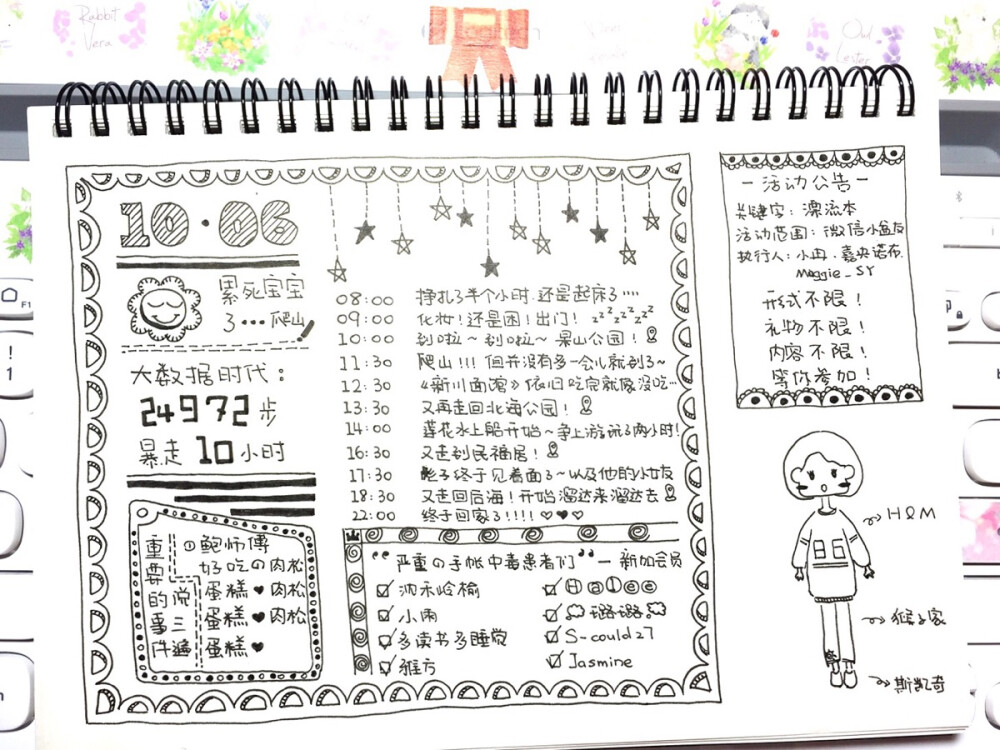 Rabbit
Vera
Owl
Lester
10·06
累死宝宝
了···爬山
大数据时代:
24972步
暴走10小时
08:00 挣扎了半个小时.还是起床了····
09:00 化妆!还是困!出门! zzzzzzz
10:00 到啦~到啦~景山公园!
11:30 爬山!!!但并没有多一会儿就到了~
12:30 《新川面馆》依旧吃完就像没吃···
13:30 又再走回北海公园!
14:00 莲花水上船开始~争上游玩了两小时!
16:30 又走到民福居!
17:30 耗子终于见着面了~以及他的小女友
18:30 又走回后海!开始溜达来溜达去
22:00 终于回家了!!!!
重要的说三遍
事件
①鲍师傅
好吃の肉松
蛋糕♥肉松
蛋糕♥肉松
蛋糕♥
“严重の手帐中毒患者们”—新加会员
小雨
多读书多睡觉
雅方
Halee
璐璐
S-could27
Jasmine
—活动公告—
关键字:漂流本
活动范围:微信小盆友
执行人:小冉.嘉央诺布.
Maggie_SY
形式不限!
礼物不限!
内容不限!
等你参加!
H&M
猴子家
斯凯奇
F1
!
1